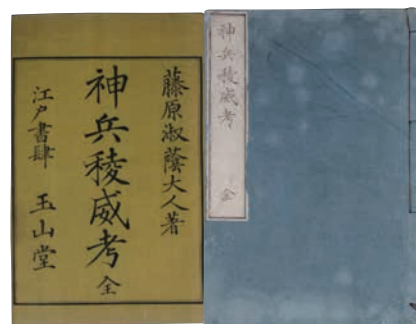 藤原淑蔭大人著
神兵稜威考 全
江戸書肆 玉山堂
神兵稜威考 全